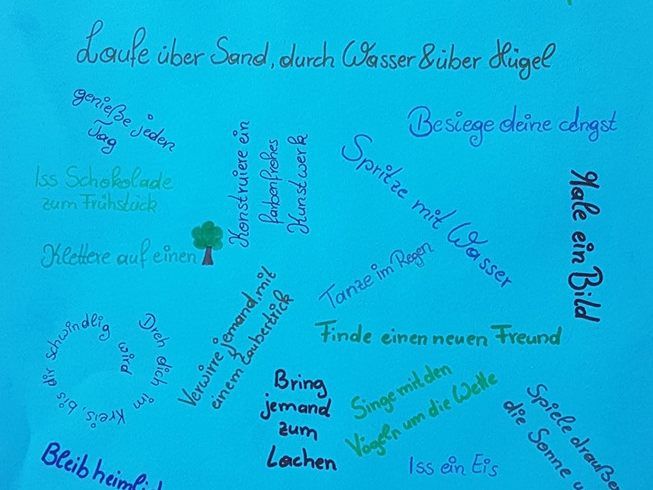 Laufe über Sand, durch Wasser & über Hügel
genieße jeden
Tag
Besiege deine Angst
Konstruiere ein
farbenfrohes
Kunstwerk
Spritze mit Wasser
Iss Schokolade
zum Frühstück
Male ein Bild
Klettere auf einen
Tanze im Regen
Verwirre jemand, mit
einem Zaubertrick
Dreh dich im Kreis, bis dir schwindlig wird
Finde einen neuen Freund
Bring
jemand
zum
Lachen
Singe mit den
Vögeln um die Wette
Spiele drauße
die Sonne u
Iss ein Eis
Bleib heimlic